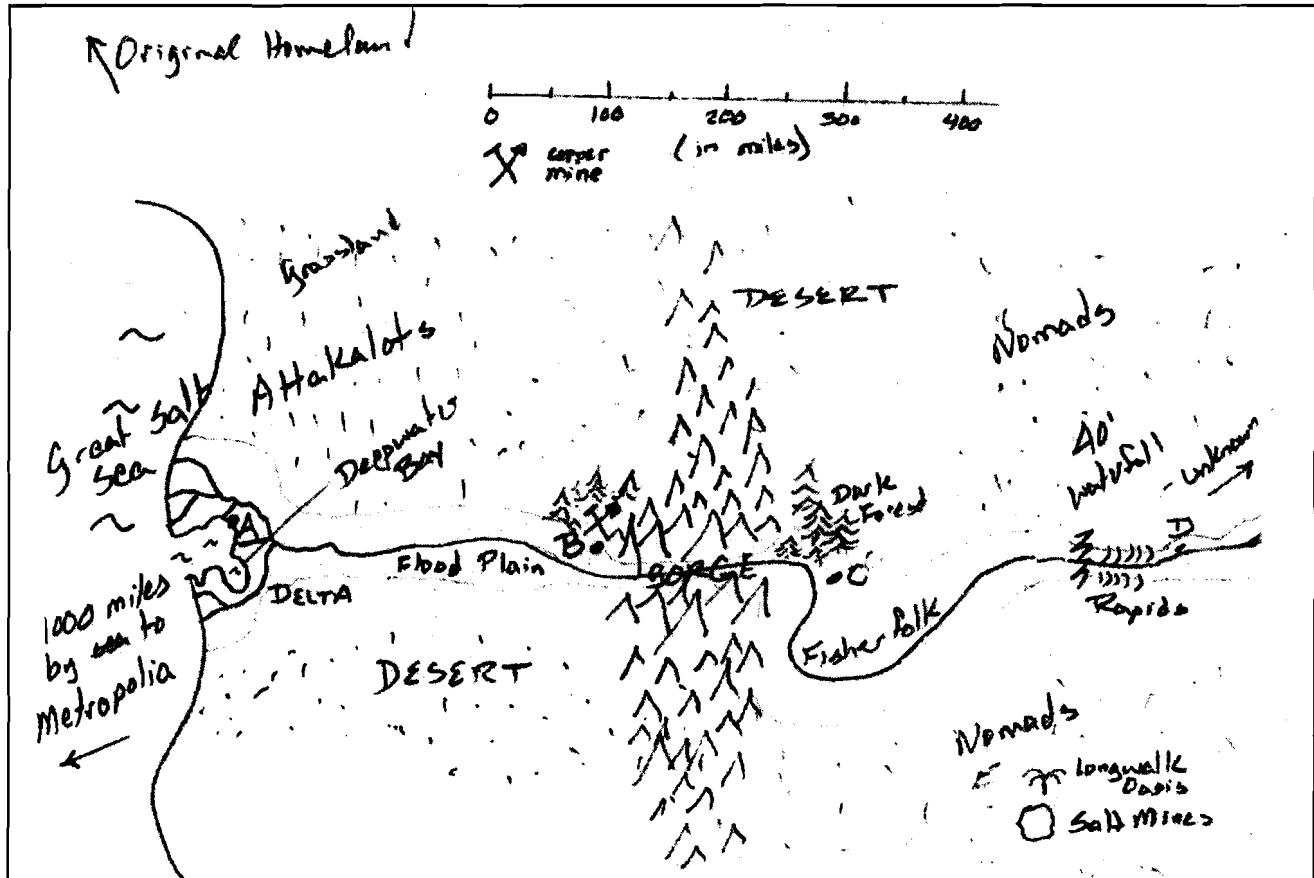 Original Homeland
0 100 200 300 400
(in miles)
copper
mine
Grassland
DESERT
Nomads
Attakalots
Great Salt
Sea
Deepwater
Bay
40'
waterfall
unknown
Dark
Forest
A
B
C
D
Flood Plain
GORGE
Rapids
DELTA
Fisher folk
1000 miles
by sea to
Metropolia
DESERT
Nomads
E
Longwalk
Oasis
Salt Mines